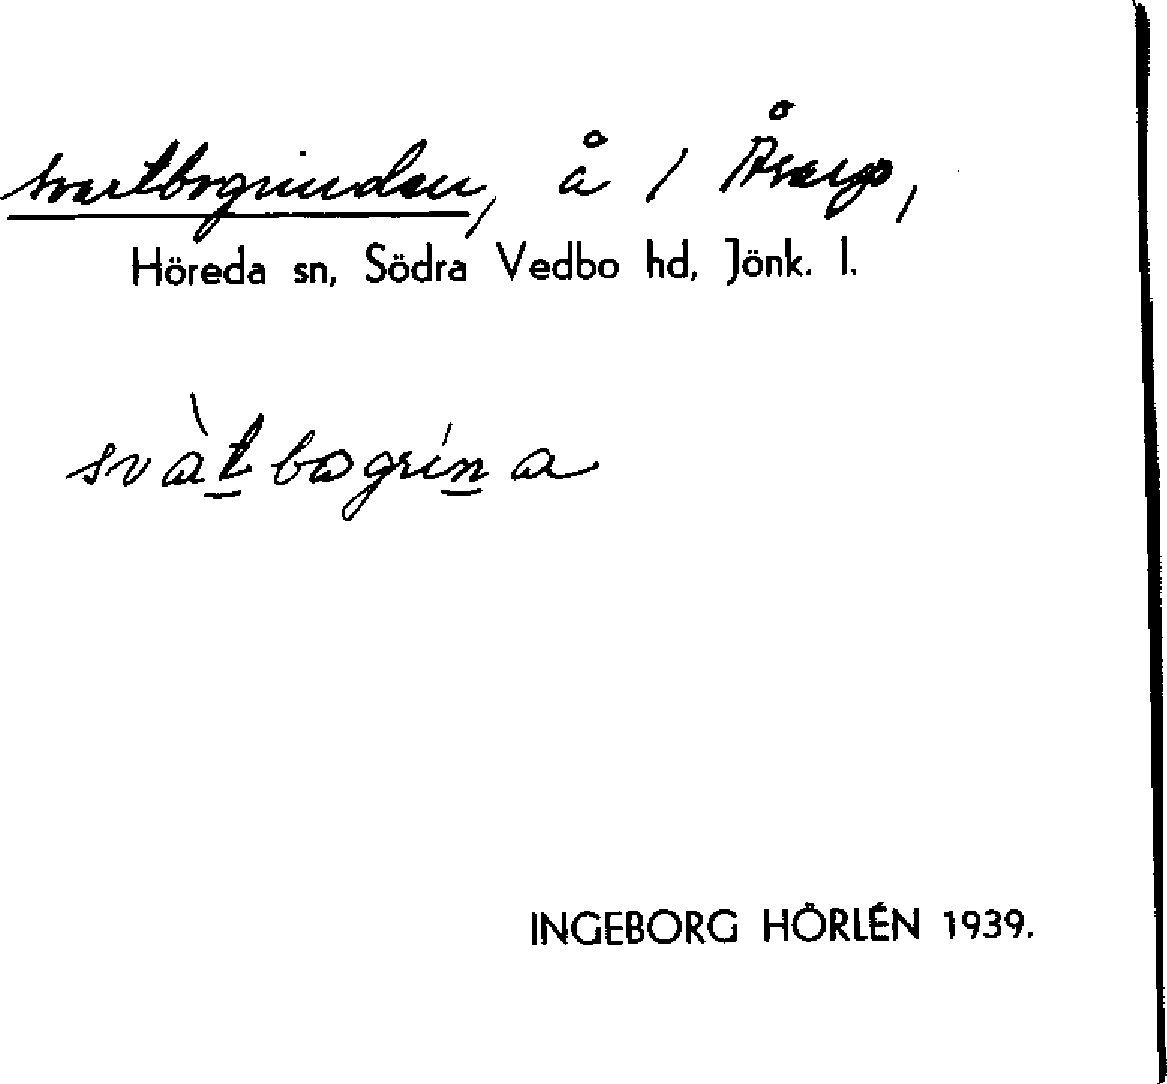 svartbogrinden, å / Åsarp,
Höreda sn, Södra Vedbo hd, Jönk. l.
svàtbogrína
INGEBORG HÖRLÉN 1939.